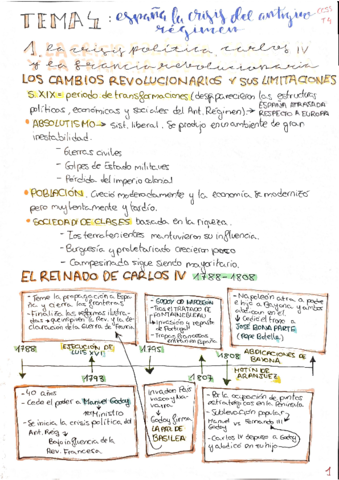 TEMA 1: españa la crisis del antiguo
régimen
1. la crisis política carlos IV
y la francia revolucionaria
LOS CAMBIOS REVOLUCIONARIOS Y SUS LIMITACIONES
S. XIX = periodo de transformaciones (desaparecieron las estructuras
políticas, económicas y sociales del Ant. Régimen) → ESPAÑA ATRASADA
RESPECTO A EUROPA
• ABSOLUTISMO → sist. liberal. Se produjo en un ambiente de gran
inestabilidad.
- Guerras civiles
- Golpes de Estado militares
- Pérdida del imperio colonial
• POBLACIÓN. Creció moderadamente y la economía se modernizó
pero muy lentamente y tardío.
• SOCIEDAD DE CLASES basada en la riqueza.
- Los terratenientes mantuvieron su influencia.
- Burguesía y proletariado crecieron poco
- Campesinado sigue siendo mayoritario.
EL REINADO DE CARLOS IV 1788-1808
- Teme la propagación a Espa-
ña y cierra las fronteras
- Finaliza las reformas ilustra-
das
claración de la Guerra de Francia.
GODOY CON NAPOLEÓN
TRATADO DE
FONTAINEBLEAU
Invasión y reparto de
Portugal
Tropas francesas
entran en España
- Napoleón atrae a padre
e hijo a Bayona y ambos
abdican en él
Cede el trono a
JOSÉ BONAPARTE
(Pepe Botella)
1788
EJECUCIÓN DE
LUIS XVI
1795
1808
ABDICACIONES DE
BAYONA
1793
1807
MOTÍN DE
ARANJUEZ
- 40 años
- Cede el poder a Manuel Godoy
Ministro
- Se inicia la crisis política del
Ant. Rég
Bajo influencia de la
Rev. Francesa.
Invaden País
Vasco y Na-
varra
Godoy firma
LA PAZ DE
BASILEA
- Por la ocupación de puntos
estratégicos en la Península
- Sublevación popular
Manuel vs Fernando VII
Godoy
- Carlos IV depuso a Godoy
y abdicó en su hijo
1